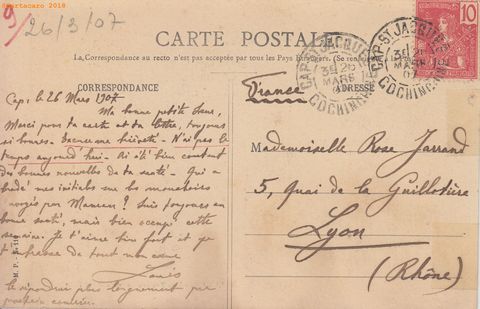 dartacaro 2018
9/ 26/3/07
CARTE POSTALE
La Correspondance au recto n'est pas acceptée par tous les Pays Etrangers. (Se renseigner
10
CAP-ST JACQUES
3E 26
MARS
07
COCHINCHINE
CAP-ST JACQUES
3E 26
MARS
07
COCHINCHINE
CORRESPONDANCE
France
ADRESSE
Cap, le 26 Mars 1907
Ma bonne petite
Merci pour ta carte et ta lettre, toujours
si bonnes. N'ai pas le
temps aujourd'hui. Ai été bien content
de bonnes nouvelles de ta santé. Qui a
brodé mes initiales sur les mouchoirs
par Maman? Suis toujours en
bonne santé, mais bien occupé cette
semaine. Je t'aime bien fort et je
t'embrasse de tout mon coeur
Louis
te répondrai plus longuement par
prochain courrier.
Mademoiselle Rose Jarrand
5, Quai de la Guillotière
Lyon
(Rhône)